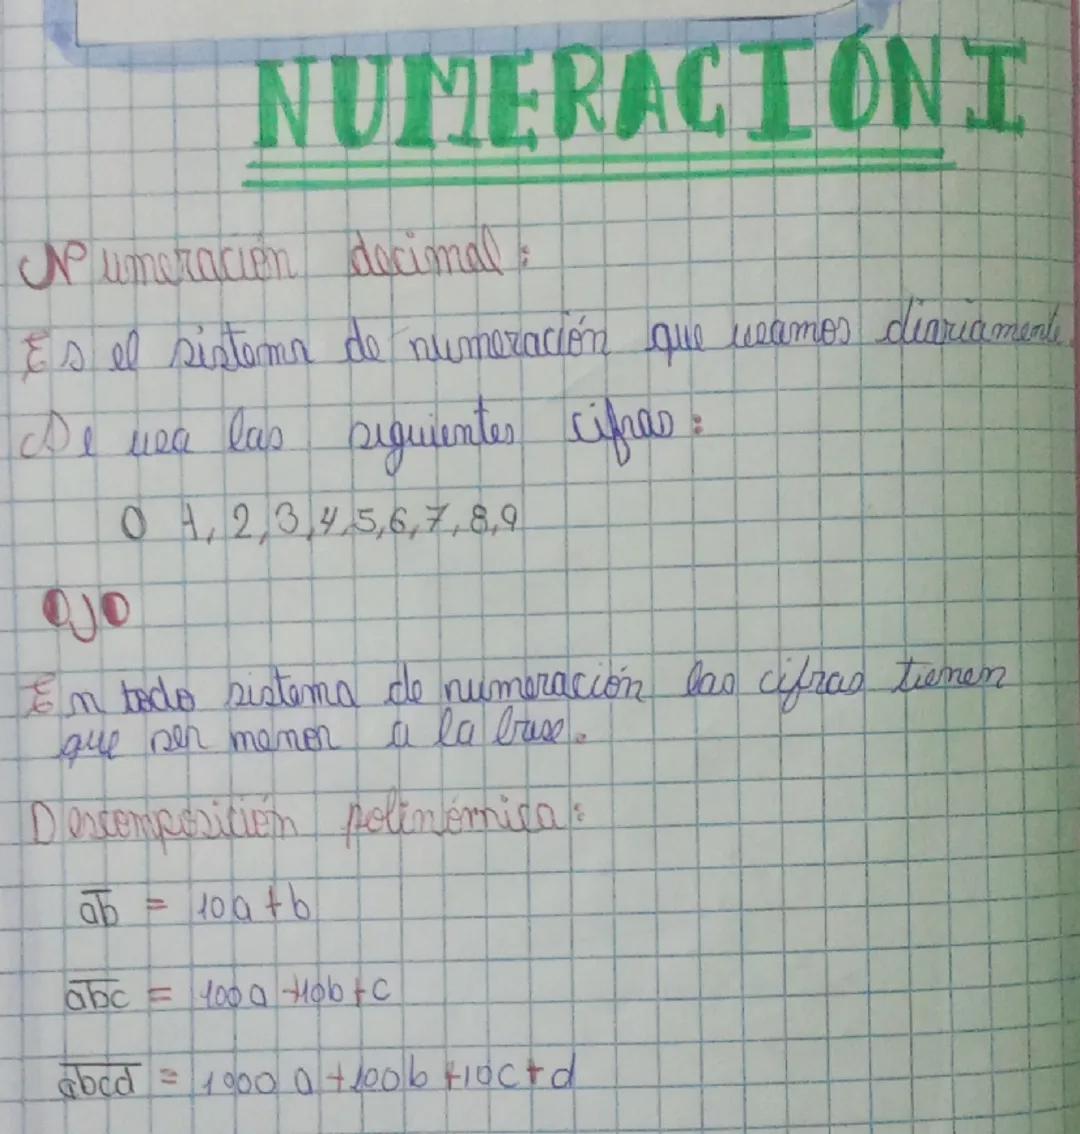 NUMERACIÓN I
Numeración decimal:
Es el sistema de numeración que usamos diariamente.
Se usa las siguientes cifras:
0 1, 2, 3, 4, 5, 6, 7, 8, 9
OJO
En todo sistema de numeración las cifras tienen
que ser menor a la base.
Descomposición polinómica:
a̅b̅ = 10a + b
a̅b̅c̅ = 100a + 10b + c
a̅b̅c̅d̅ = 1000a + 100b + 10c + d